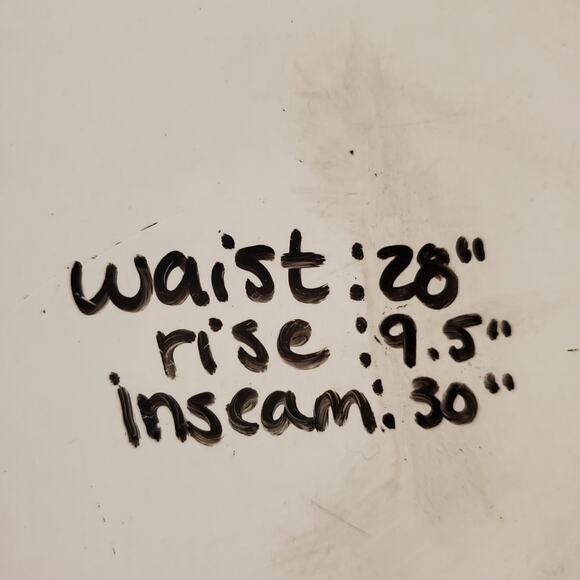 waist: 28"
rise: 9.5"
inseam: 30"